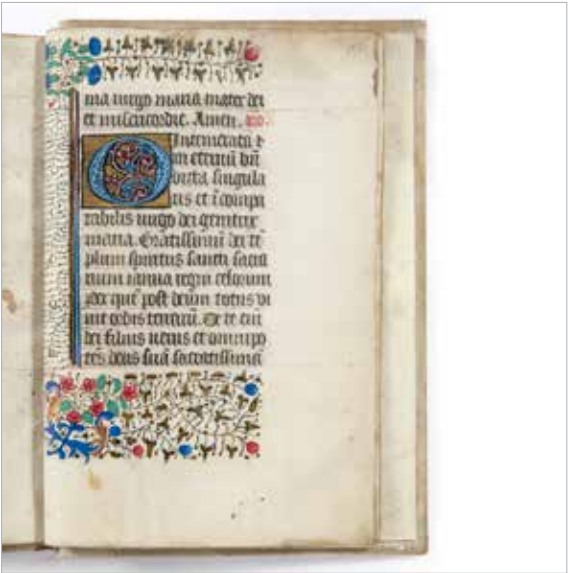 ma virgo maria mater dei
et misericordie. Amen.
O Intemerata ⁊
in eternū bn̄
dicta singula
ris et ī compa
rabilis virgo dei genitrix
maria. Gratissimū dei tē
plum spiritus sancti sacra
rium ianua regni celorum
per quē post deum totus vi
uit orbis terrarū. De te enī
dei filius uerus et omnipo
tēs deus suā sacratissimā